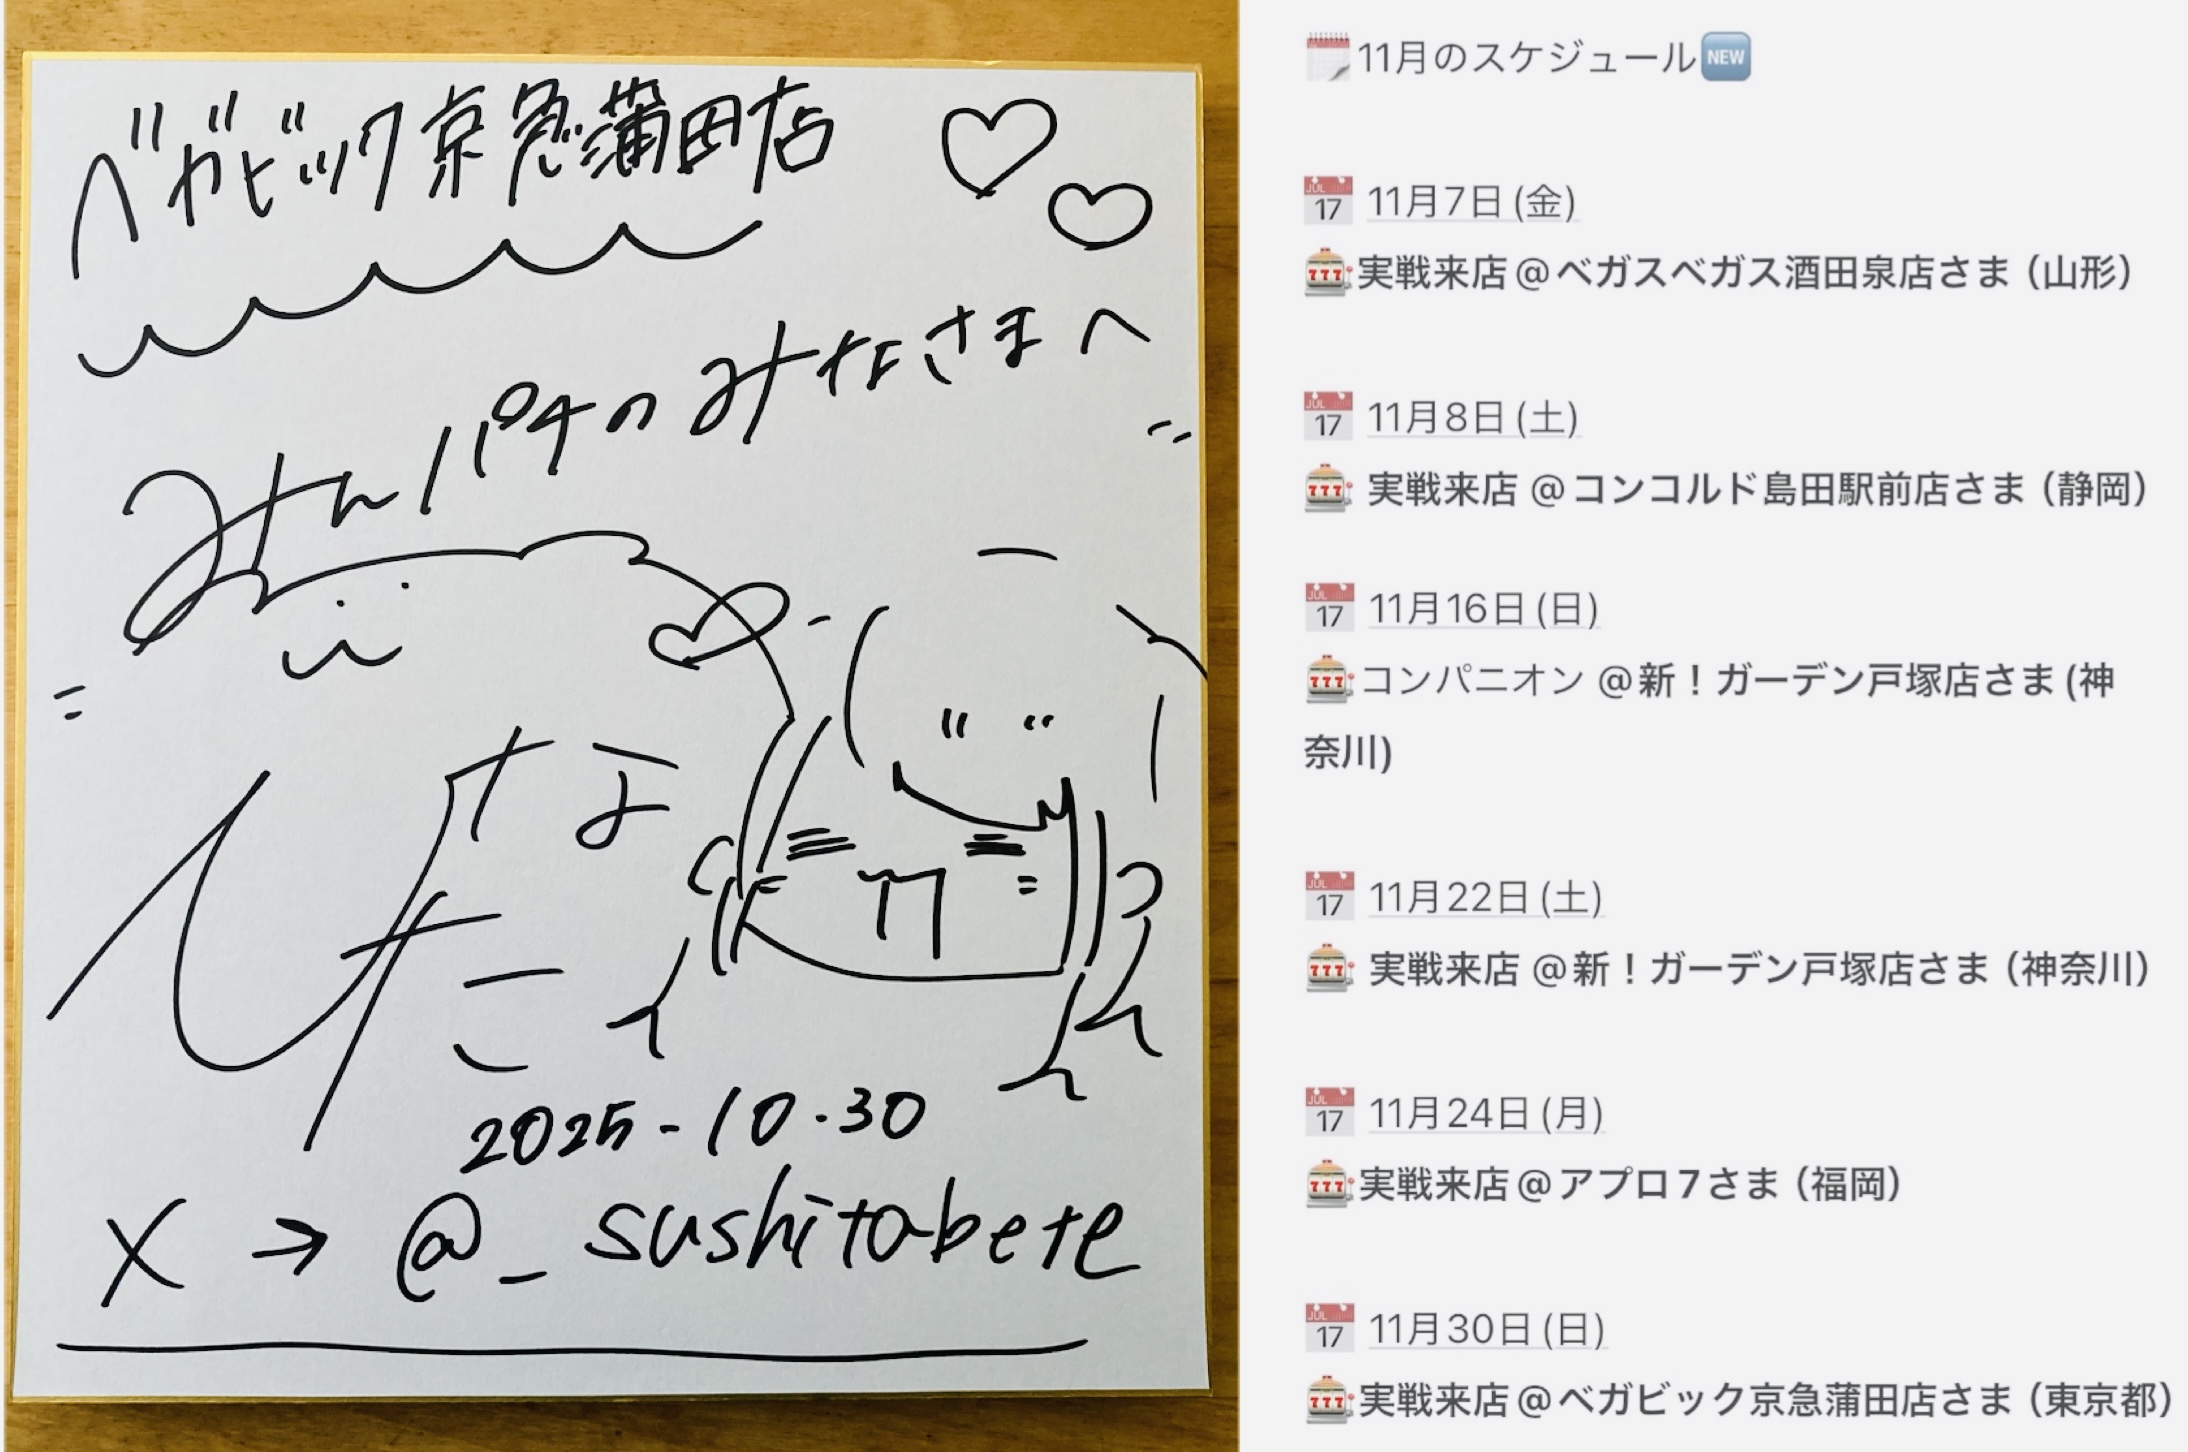 ベガビック京急蒲田店
みんパチのみなさまへ
ひなたまこ
2025-10.30
X → @_sushitabete
11月のスケジュールNEW
JUL 17 11月7日(金)
777実戦来店@ベガスベガス酒田泉店さま（山形）
JUL 17 11月8日(土)
777 実戦来店 @コンコルド島田駅前店さま（静岡）
JUL 17 11月16日(日)
777コンパニオン @新！ガーデン戸塚店さま(神
奈川)
JUL 17 11月22日(土)
777 実戦来店 @新！ガーデン戸塚店さま（神奈川）
JUL 17 11月24日(月)
777実戦来店@アプロ7さま（福岡）
JUL 17 11月30日(日)
777実戦来店@ベガビック京急蒲田店さま（東京都）